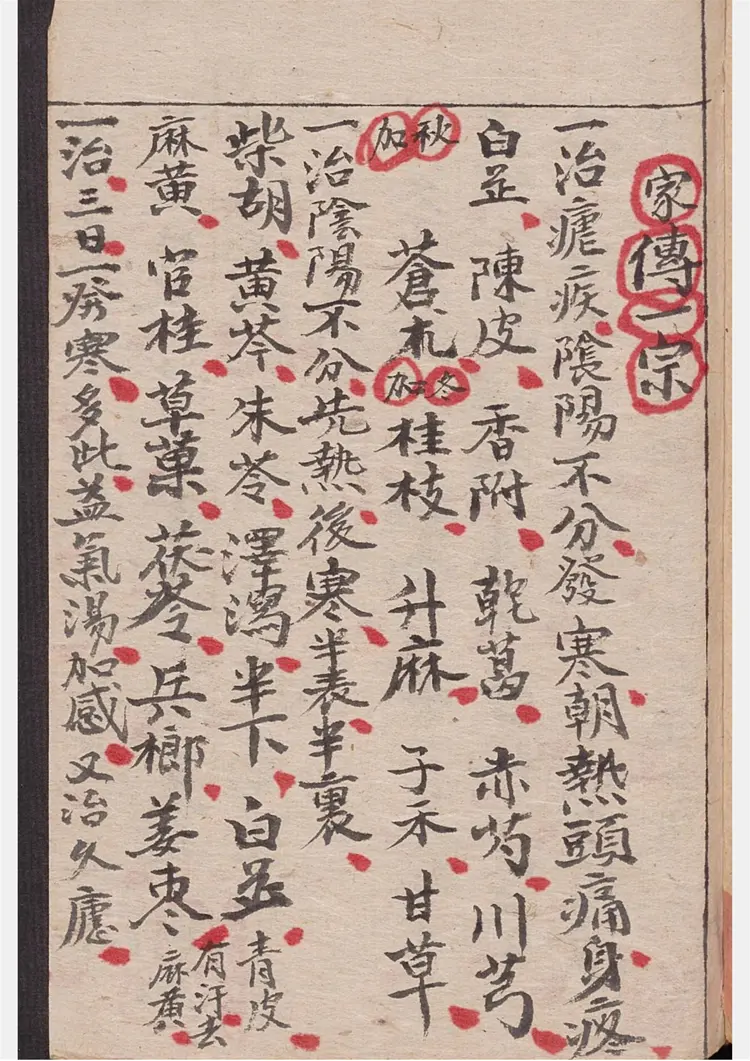 家傳一宗
一治瘧疾陰陽不分發寒朝熱頭痛身疼
白芷 陳皮 香附 乾葛 赤芍 川芎
秋加 蒼朮 冬加 桂枝 升麻 子禾 甘草
一治陰陽不分先熱後寒半表半裏
柴胡 黃芩 朱苓 澤瀉 半下 白芷 青皮
麻黃 官桂 草菓 茯苓 兵榔 姜枣 有汗去麻黃
一治三日一発寒多此益氣湯加感又治久瘧